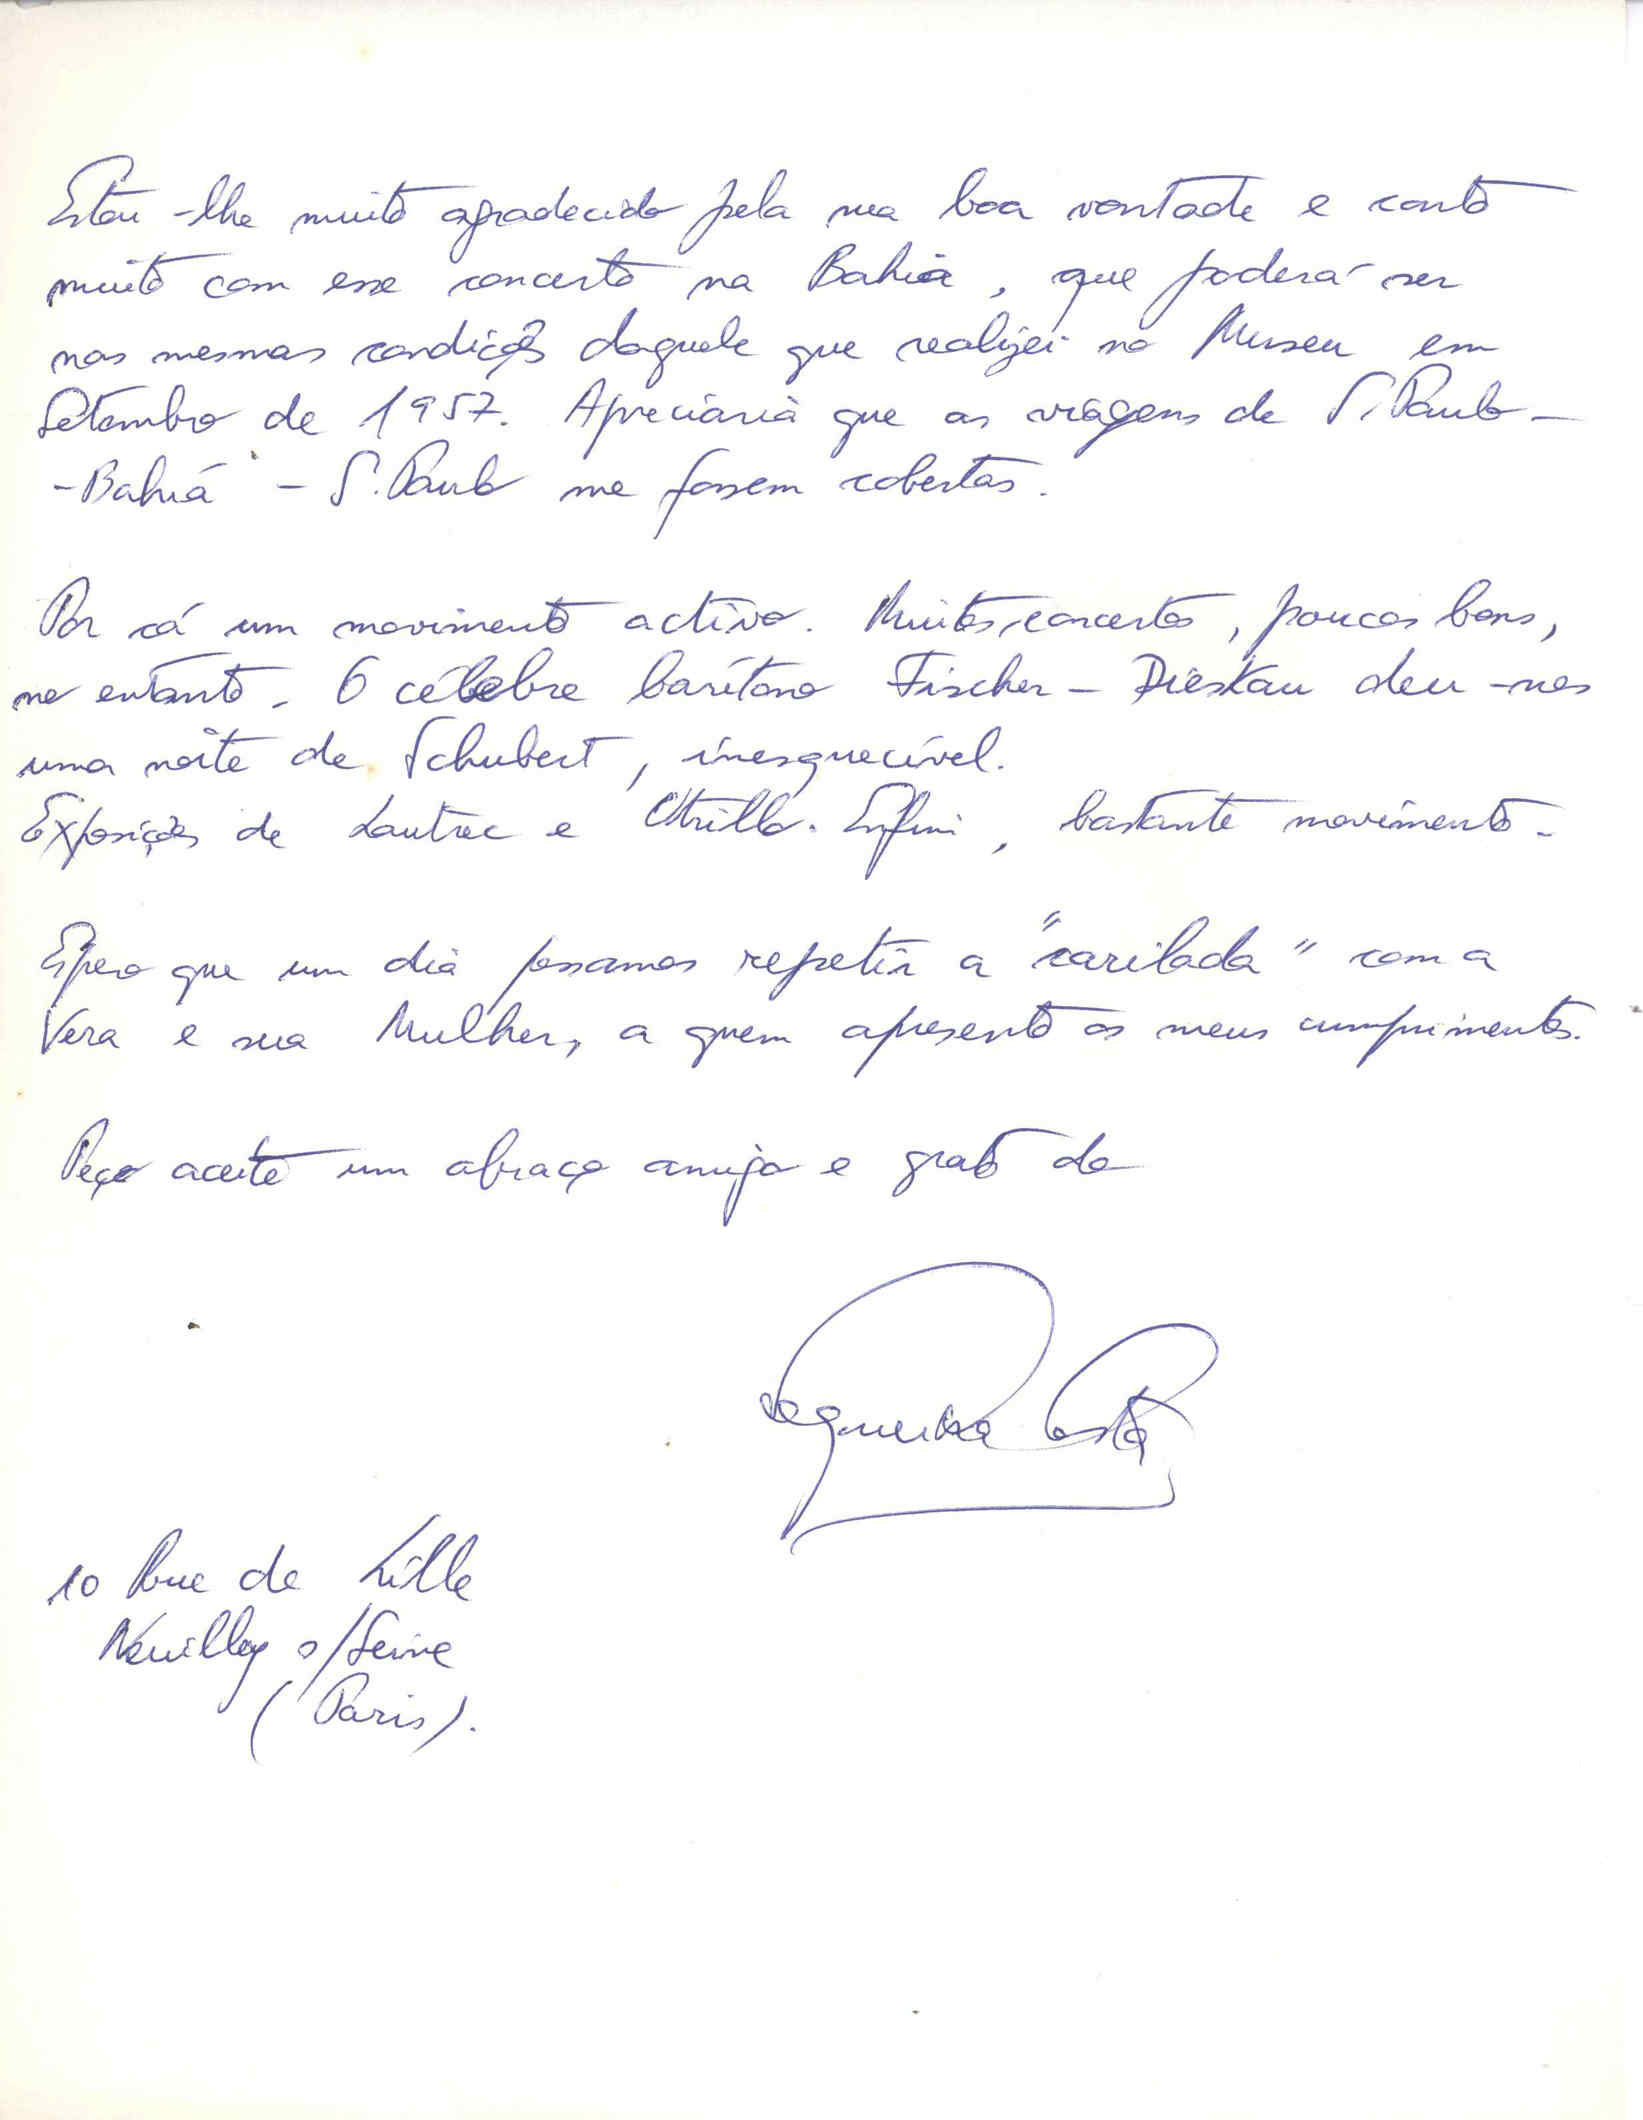 Estou-lhe muito agradecido pela sua boa vontade e conto
muito com esse concerto na Bahia, que poderá ser
nas mesmas condições daquele que realizei no Museu em
Setembro de 1957. Apreciaria que as viagens de S. Paulo -
- Bahia - S. Paulo me fossem cobertas.
Por cá um movimento activo. Muitos concertos, poucos bons,
no entanto. O célebre barítono Fischer-Dieskau deu-nos
uma noite de Schubert, inesquecível.
Exposições de Lautrec e Utrillo. Enfim, bastante movimento.
Espero que um dia possamos repetir a "carilada" com a
Vera e sua Mulher, a quem apresento os meus cumprimentos.
Peço aceite um abraço amigo e grato do
Sequeira Costa
10 Rue de Lille
Neuilly s/Seine
(Paris).